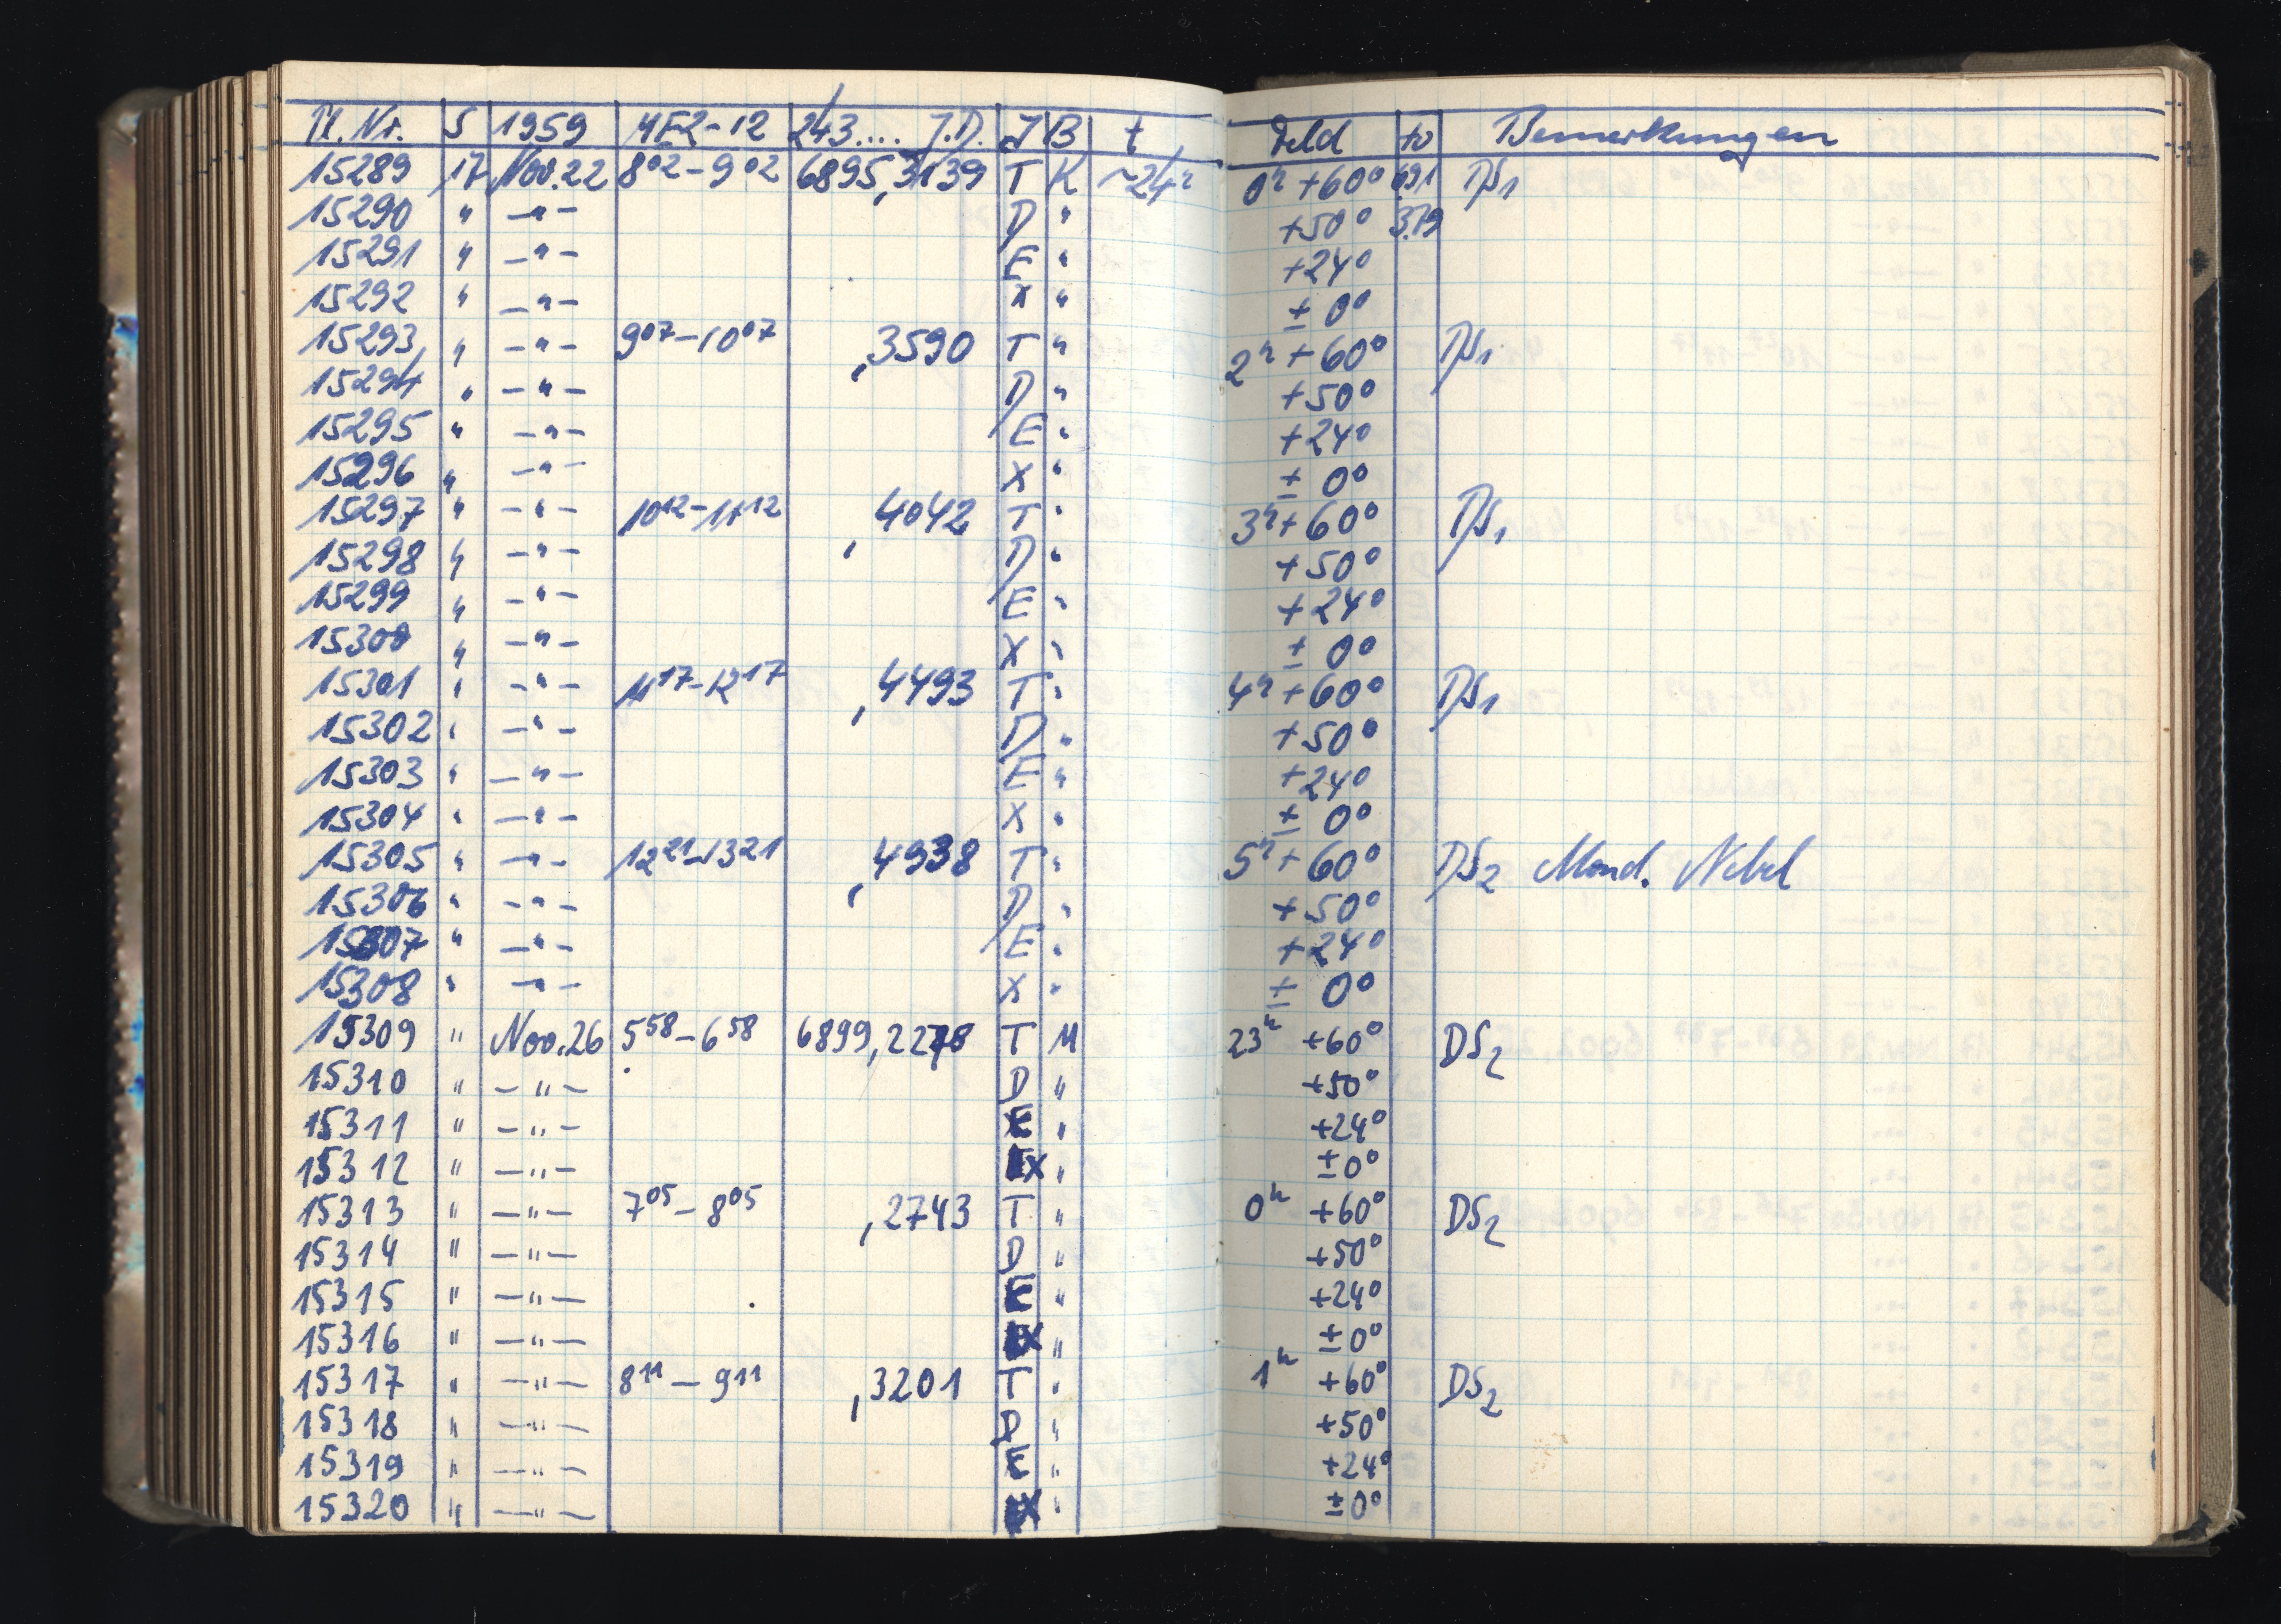 Pl. Nr. S 1959 MEZ-12 243.... J.D. J B t Feld tv Bemerkungen
15289 17 Nov. 22 8⁰²-9⁰² 6895,3139 T K ~24ʰ 0ʰ +60° DS₁
15290 " -"- D " +50°
15291 " -"- E " +24°
15292 " -"- X " ± 0°
15293 " -"- 9⁰⁷-10⁰⁷ ,3590 T " 2ʰ +60° DS₁
15294 " -"- D " +50°
15295 " -"- E " +24°
15296 " -"- X " ± 0°
15297 " -"- 10¹²-11¹² ,4042 T " 3ʰ +60° DS₁
15298 " -"- D " +50°
15299 " -"- E " +24°
15300 " -"- X " ± 0°
15301 " -"- 11¹⁷-12¹⁷ ,4493 T " 4ʰ +60° DS₁
15302 " -"- D " +50°
15303 " -"- E " +24°
15304 " -"- X " ± 0°
15305 " -"- 12²¹-13²¹ ,4938 T " 5ʰ +60° DS₂ Mond. Nebel
15306 " -"- D " +50°
15307 " -"- E " +24°
15308 " -"- X " ± 0°
15309 " Nov. 26 5⁵⁸-6⁵⁸ 6899,2278 T M 23ʰ +60° DS₂
15310 " -"- D " +50°
15311 " -"- E " +24°
15312 " -"- X " ±0°
15313 " -"- 7⁰⁵-8⁰⁵ ,2743 T " 0ʰ +60° DS₂
15314 " -"- D " +50°
15315 " -"- E " +24°
15316 " -"- X " ±0°
15317 " -"- 8¹¹-9¹¹ ,3201 T " 1ʰ +60° DS₂
15318 " -"- D " +50°
15319 " -"- E " +24°
15320 " -"- X " ±0°